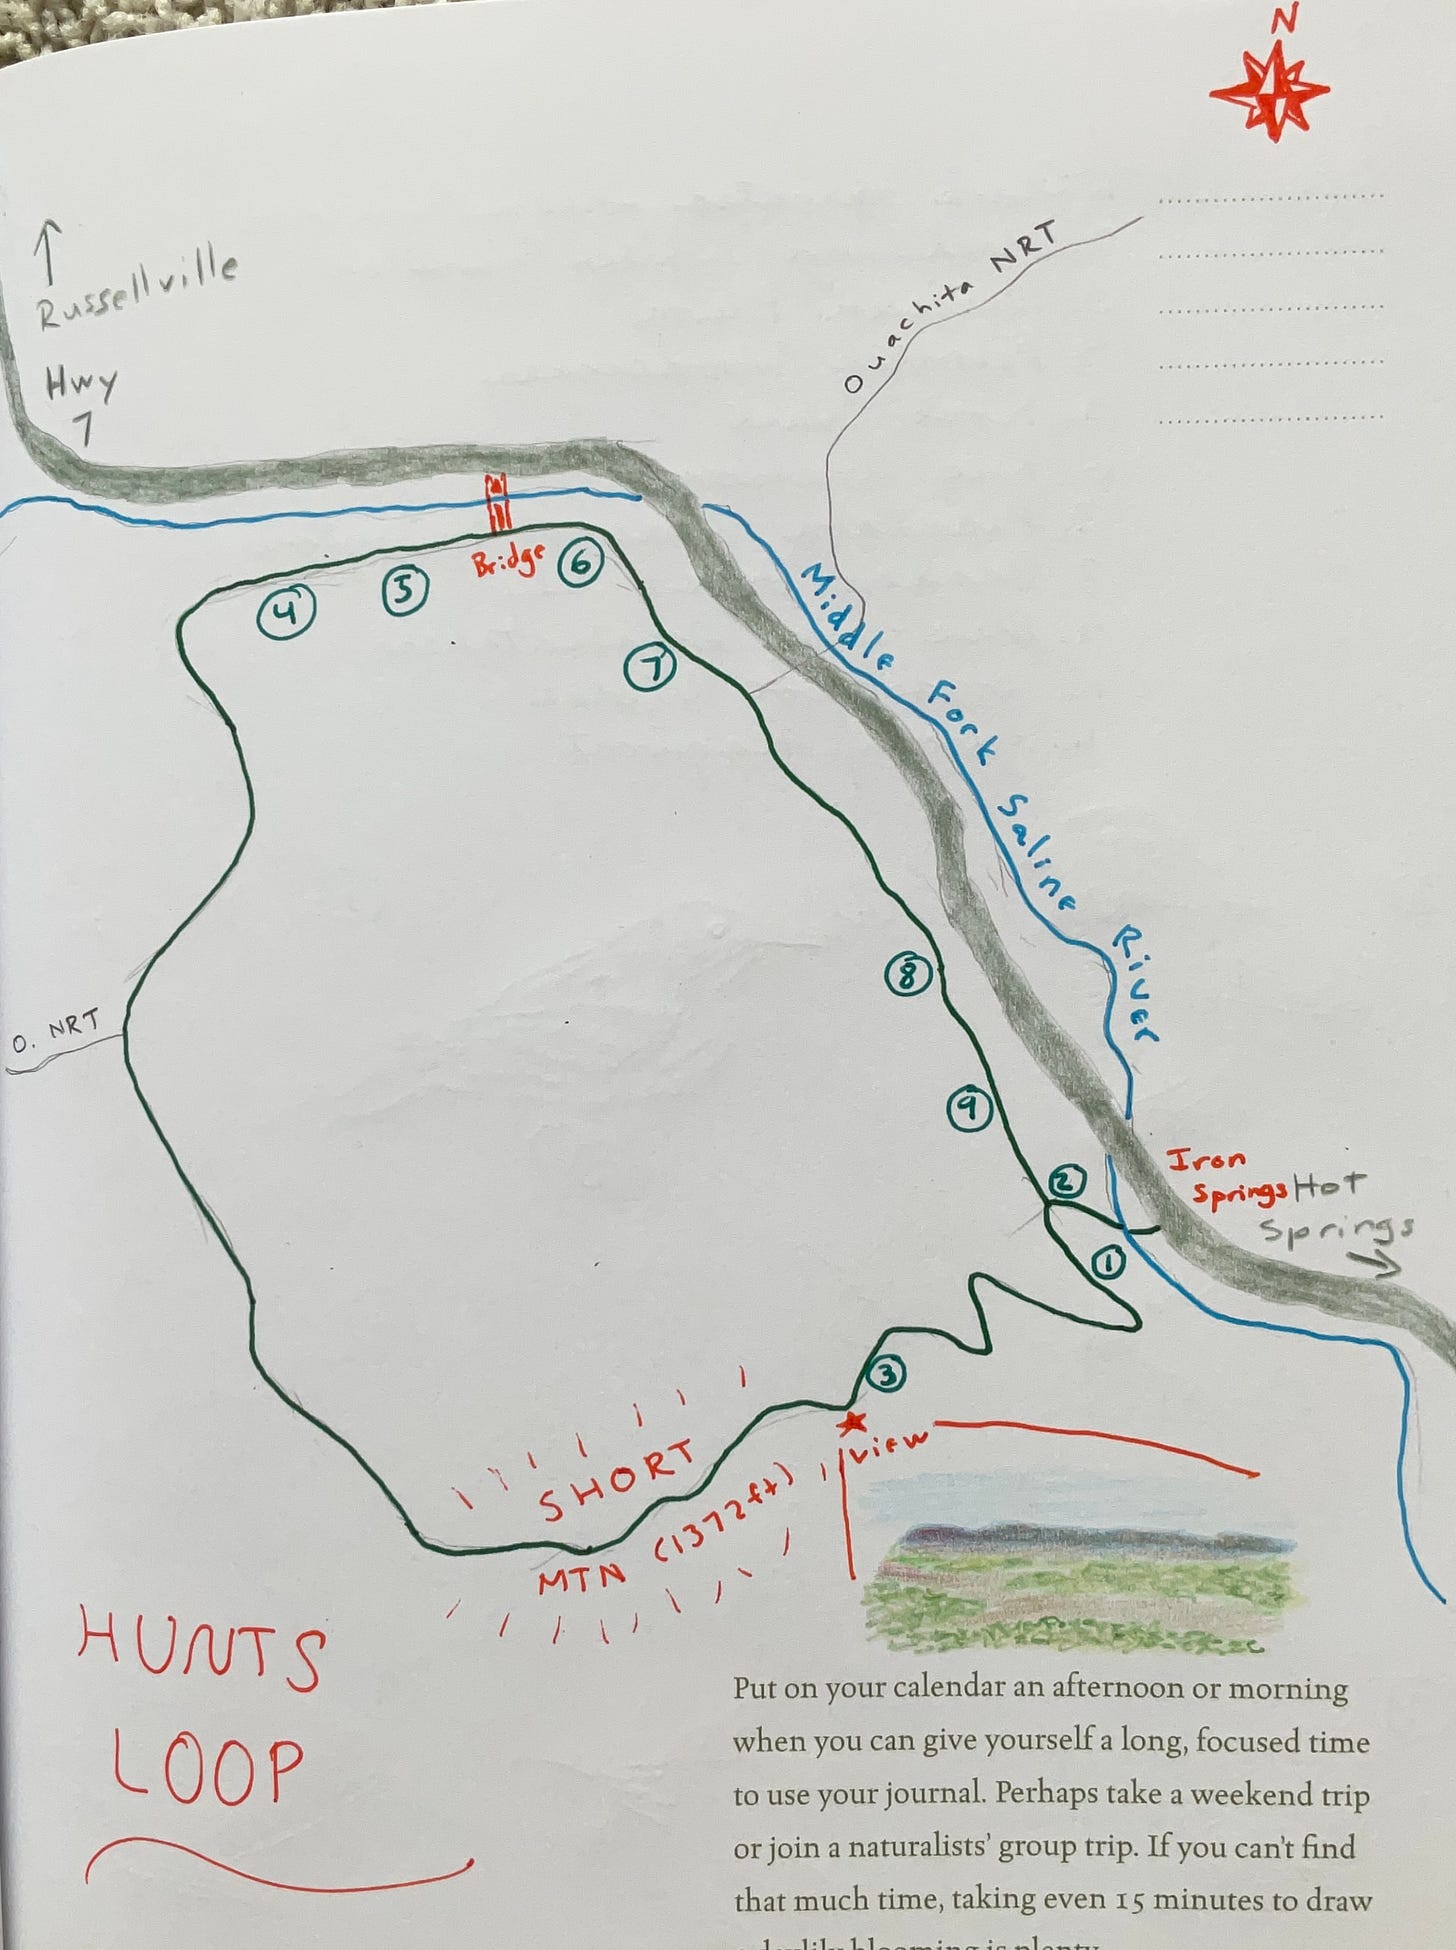 N
Russellville
Hwy
7
Ouachita NRT
Middle Fork Saline River
Bridge
4
5
6
7
8
9
O. NRT
2
1
3
Iron
Springs
Hot
Springs
view
SHORT
MTN (1372ft)
HUNTS
LOOP
Put on your calendar an afternoon or morning
when you can give yourself a long, focused time
to use your journal. Perhaps take a weekend trip
or join a naturalists’ group trip. If you can’t find
that much time, taking even 15 minutes to draw
daylily blooming is plenty